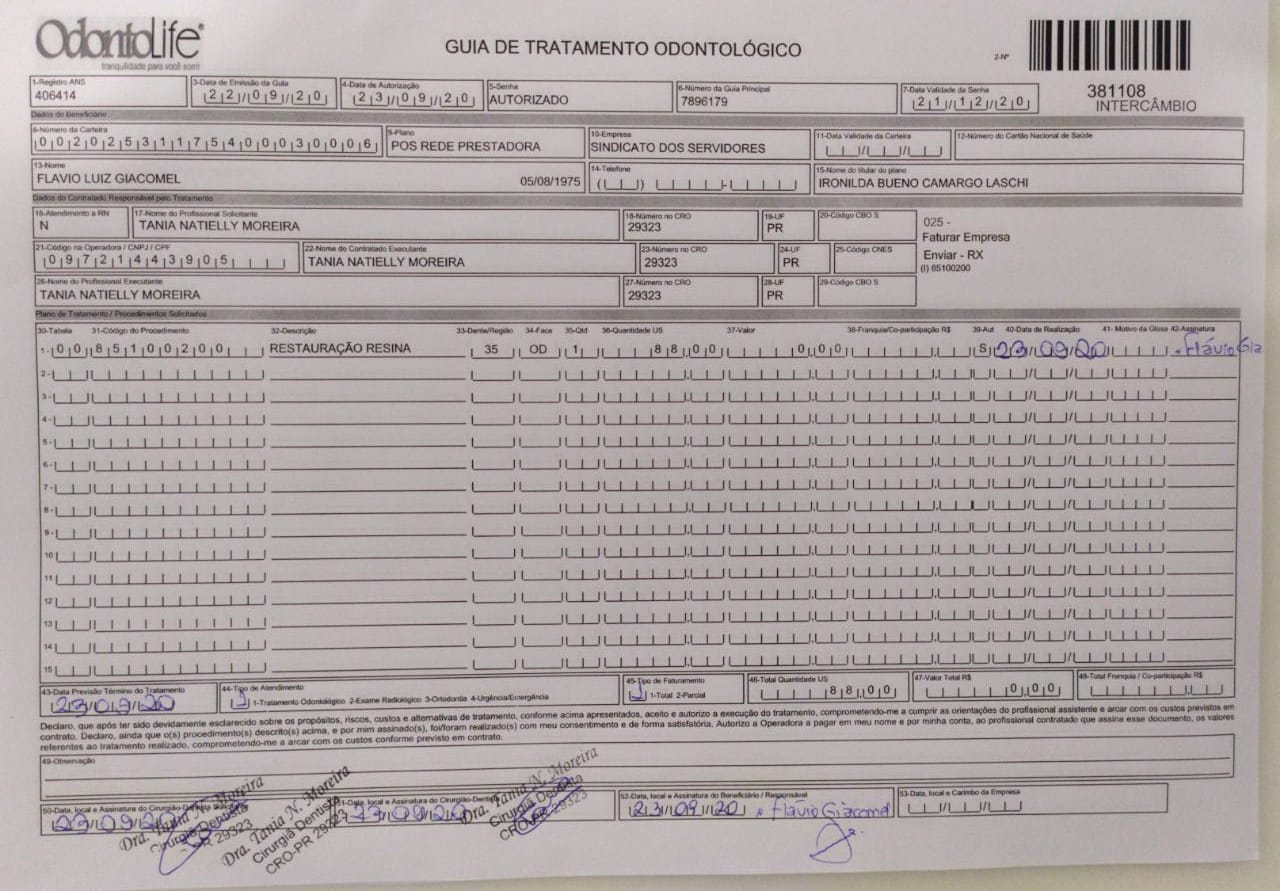 OdontoLife
tranquilidade para você sorrir
GUIA DE TRATAMENTO ODONTOLÓGICO
2-Nº
381108
INTERCÂMBIO
1-Registro ANS
406414
3-Data de Emissão da Guia
22/09/20
4-Data de Autorização
23/09/20
5-Senha
AUTORIZADO
6-Número da Guia Principal
7896179
7-Data Validade da Senha
21/12/20
Dados do Beneficiário
8-Número da Carteira
00202531175400030006
9-Plano
POS REDE PRESTADORA
10-Empresa
SINDICATO DOS SERVIDORES
11-Data Validade da Carteira
12-Número do Cartão Nacional de Saúde
13-Nome
FLAVIO LUIZ GIACOMEL 05/08/1975
14-Telefone
15-Nome do titular do plano
IRONILDA BUENO CAMARGO LASCHI
Dados do Contratado Responsável pelo Tratamento
16-Atendimento a RN
N
17-Nome do Profissional Solicitante
TANIA NATIELLY MOREIRA
18-Número no CRO
29323
19-UF
PR
20-Código CBO S
025 -
Faturar Empresa
Enviar - RX
(I) 85100200
21-Código na Operadora / CNPJ / CPF
09721443905
22-Nome do Contratado Executante
TANIA NATIELLY MOREIRA
23-Número no CRO
29323
24-UF
PR
25-Código CNES
26-Nome do Profissional Executante
TANIA NATIELLY MOREIRA
27-Número no CRO
29323
28-UF
PR
29-Código CBO S
Plano de Tratamento / Procedimentos Solicitados
30-Tabela 31-Código do Procedimento 32-Descrição 33-Dente/Região 34-Face 35-Qtd 36-Quantidade US 37-Valor 38-Franquia/Co-participação R$ 39-Aut 40-Data de Realização 41- Motivo da Glosa 42-Assinatura
1- 00 85100200 RESTAURAÇÃO RESINA 35 OD 1 88,00 0,00 S 23/09/20 Flávio Gia
2-
3-
4-
5-
6-
7-
8-
9-
10
11
12
13
14
15
43-Data Previsão Término do Tratamento
23/09/20
44-Tipo de Atendimento
1 1-Tratamento Odontológico 2-Exame Radiológico 3-Ortodontia 4-Urgência/Emergência
45-Tipo de Faturamento
1 1-Total 2-Parcial
46-Total Quantidade US
88,00
47-Valor Total R$
0,00
48-Total Franquia / Co-participação R$
Declaro, que após ter sido devidamente esclarecido sobre os propósitos, riscos, custos e alternativas de tratamento, conforme acima apresentados, aceito e autorizo a execução do tratamento, comprometendo-me a cumprir as orientações do profissional assistente e arcar com os custos previstos em
contrato. Declaro, ainda que o(s) procedimento(s) descrito(s) acima, e por mim assinado(s), foi/foram realizado(s) com meu consentimento e de forma satisfatória, Autorizo a Operadora a pagar em meu nome e por minha conta, ao profissional contratado que assina esse documento, os valores
referentes ao tratamento realizado, comprometendo-me a arcar com os custos conforme previsto em contrato.
49-Observação
50-Data, local e Assinatura do Cirurgião-Dentista Solicitante
23/09/20
Dra. Tania N. Moreira
Cirurgiã Dentista
CRO-PR 29323
Dra. Tania N. Moreira
Cirurgiã Dentista
CRO-PR 29323
51-Data, local e Assinatura do Cirurgião-Dentista
23/09/20
Dra. Tania N. Moreira
Cirurgiã Dentista
CRO-PR 29323
52-Data, local e Assinatura do Beneficiário / Responsável
23/09/20 Flávio Giacomel
53-Data, local e Carimbo da Empresa